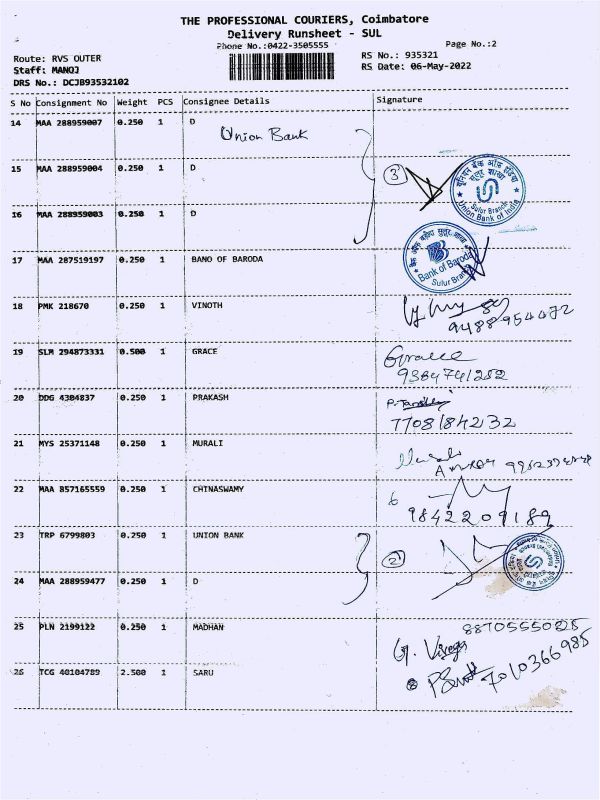 THE PROFESSIONAL COURIERS, Coimbatore
Delivery Runsheet - SUL
Phone No.:0422-3505555
Page No.:2
Route: RVS OUTER
RS No.: 935321
Staff: MANOJ
RS Date: 06-May-2022
DRS No.: DCJB93532102
S No Consignment No Weight PCS Consignee Details Signature
14 MAA 288959007 0.250 1 D
Union Bank
15 MAA 288959004 0.250 1 D
3
यूनियन बैंक ऑफ इंडिया
Sulur Branch
Union Bank of India
16 MAA 288959003 0.250 1 D
17 MAA 287519197 0.250 1 BANO OF BARODA
Bank of Baroda
Sulur Branch
18 PMK 218670 0.250 1 VINOTH
9488954472
19 SLM 294873331 0.500 1 GRACE
Grace
9384741252
20 DDG 4304837 0.250 1 PRAKASH
7708184232
21 MYS 25371148 0.250 1 MURALI
22 MAA 857165559 0.250 1 CHINASWAMY
9842209189
23 TRP 6799803 0.250 1 UNION BANK
2
24 MAA 288959477 0.250 1 D
25 PLN 2199122 0.250 1 MADHAN
26 TCG 40104789 2.500 1 SARU
7010366985